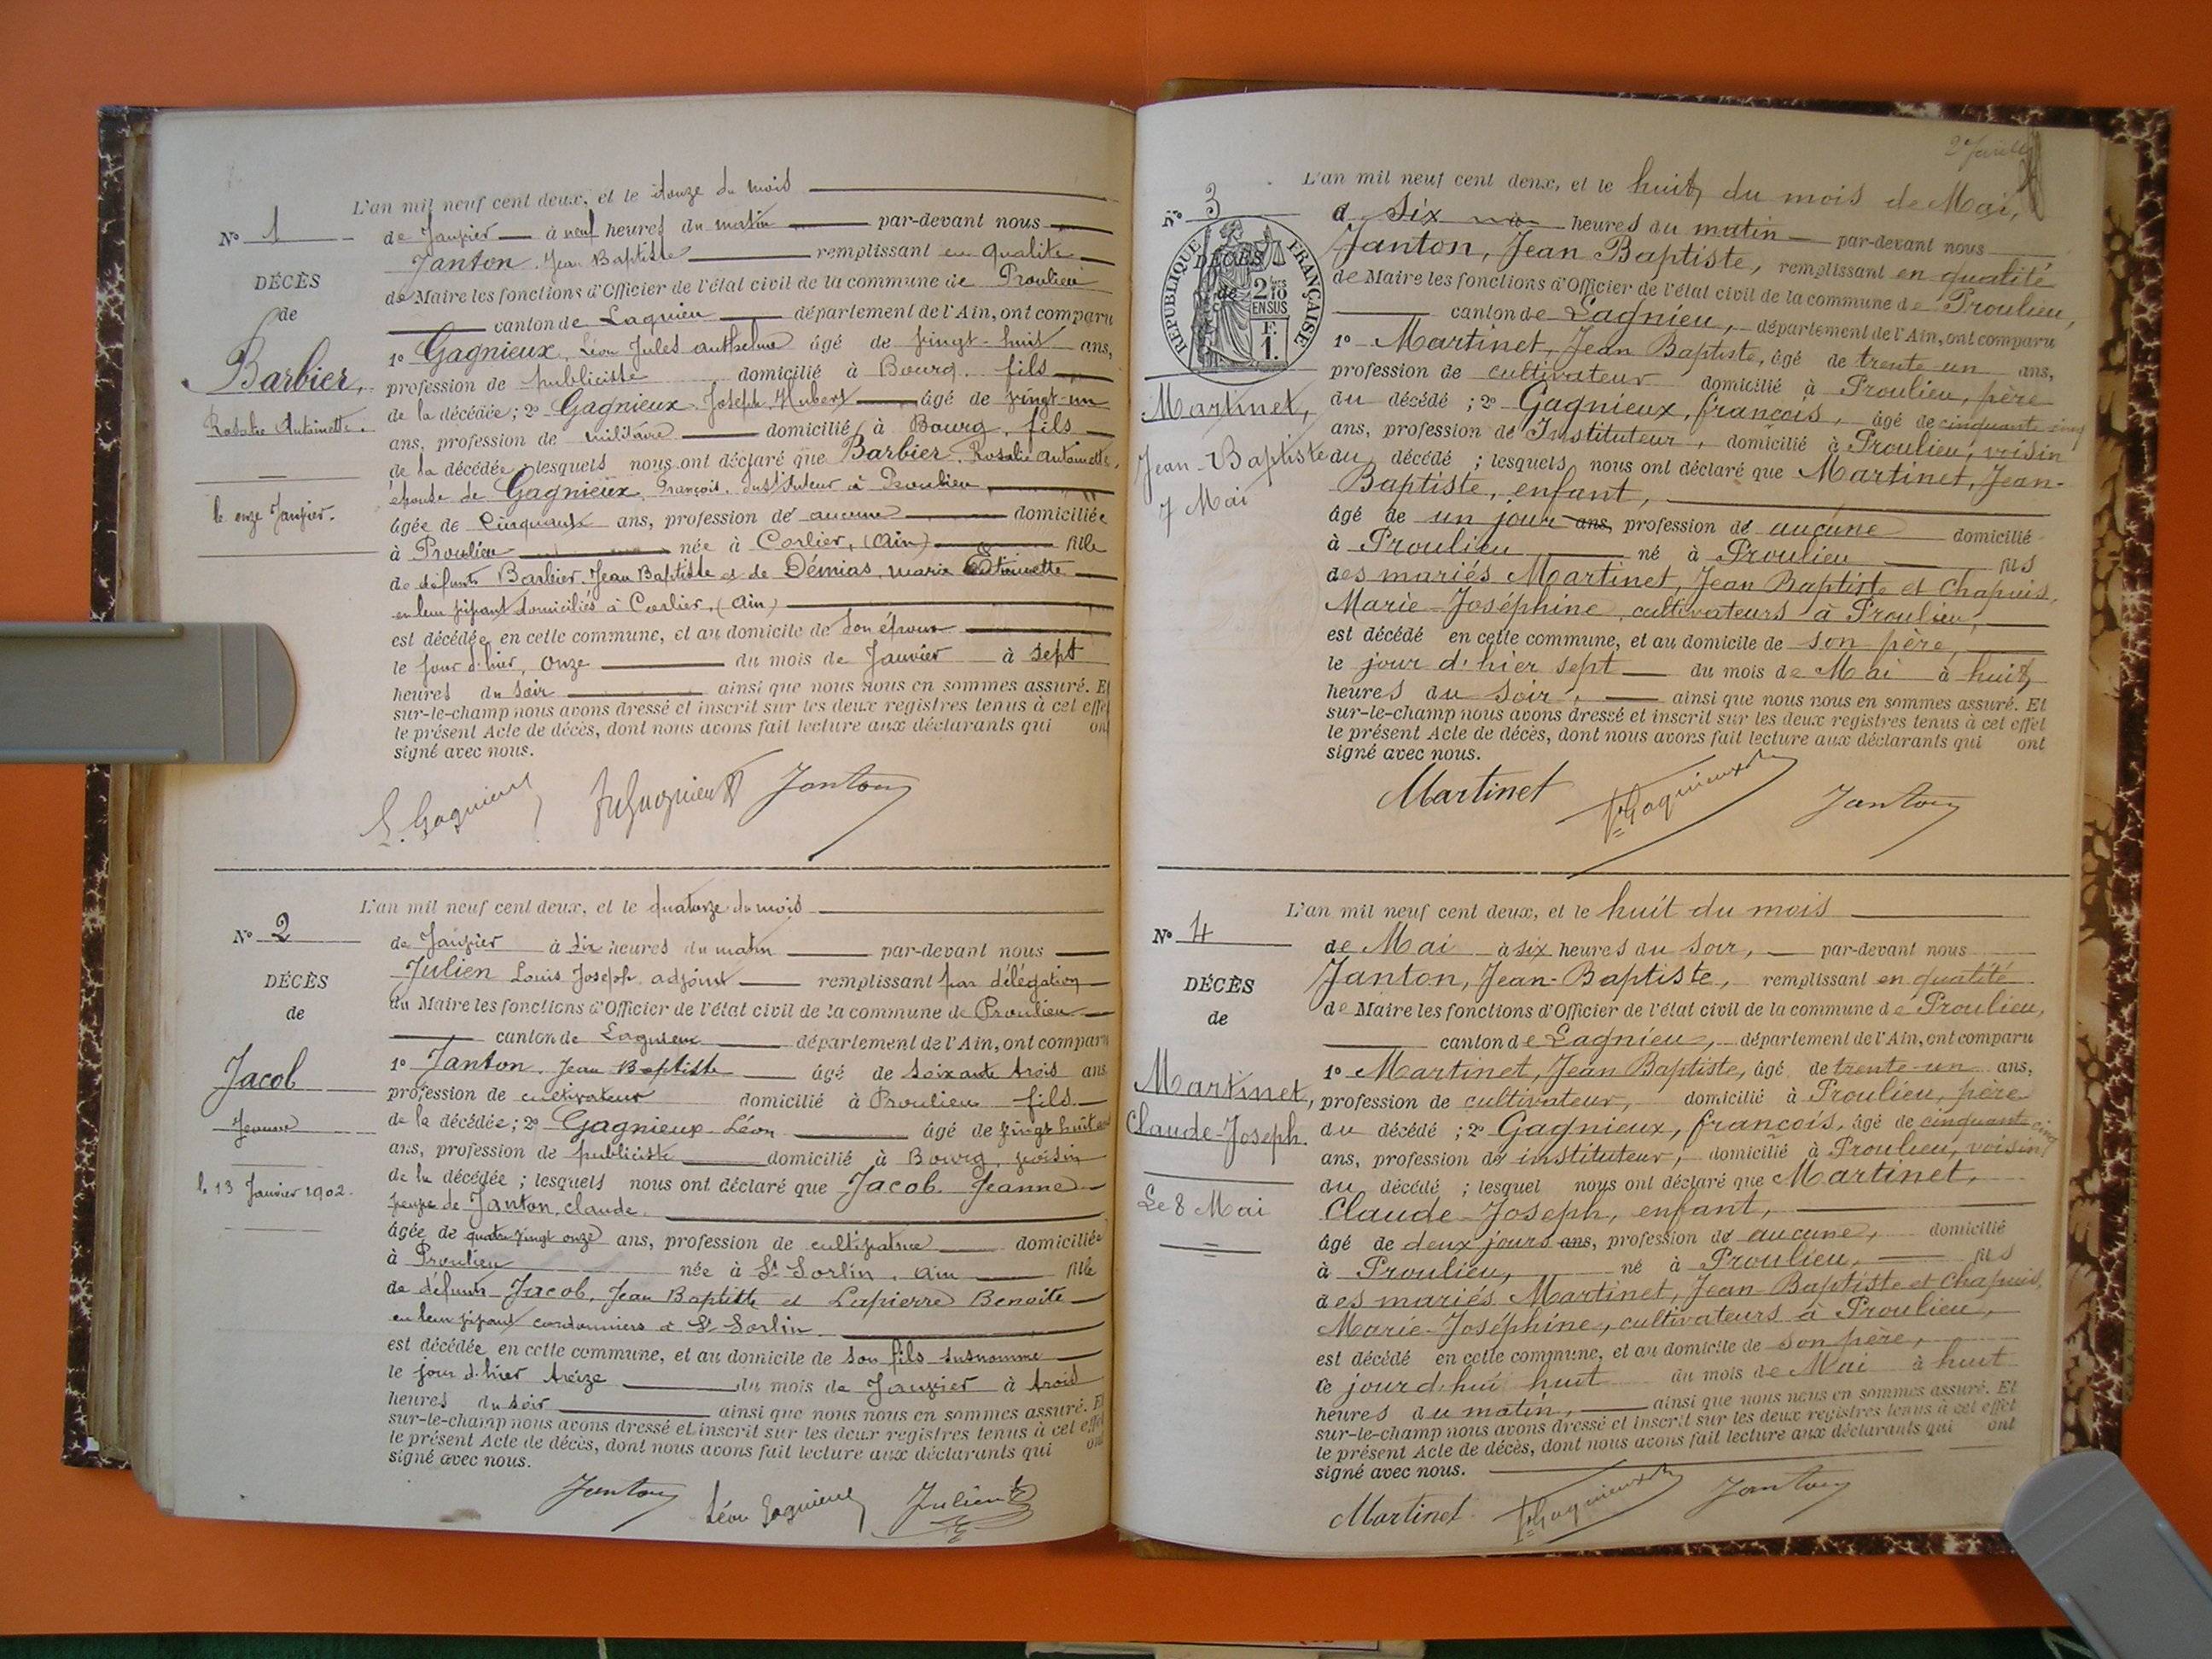 L'an mil neuf cent deux, et le douze du mois
N° 1
de Janvier à neuf heures du matin par-devant nous
Janton, Jean Baptiste remplissant en qualité
DÉCÈS
de Maire les fonctions d'Officier de l'état civil de la commune de Proulieu
de
canton de Lagnieu département de l'Ain, ont comparu
Barbier,
1° Gagnieux, Léon Jules anthelme âgé de vingt-huit ans,
profession de publiciste domicilié à Bourg, fils
Rosalie Antoinette.
de la décédée; 2° Gagnieux, Joseph, Hubert âgé de vingt-un
ans, profession de militaire domicilié à Bourg, fils
de la décédée; lesquels nous ont déclaré que Barbier, Rosalie Antoinette,
épouse de Gagnieux, François, Instituteur à Proulieu
le onze Janvier.
âgée de Cinquante ans, profession de aucune domiciliée
à Proulieu née à Corlier, (Ain) fille
de défunts Barbier, Jean Baptiste et de Démias, marie Antoinette
en leur vivant domiciliés à Corlier, (Ain)
est décédée en cette commune, et au domicile de son époux
le jour d'hier, onze du mois de Janvier à sept
heures du soir ainsi que nous nous en sommes assuré. Et
sur-le-champ nous avons dressé et inscrit sur les deux registres tenus à cet effet
le présent Acte de décès, dont nous avons fait lecture aux déclarants qui ont
signé avec nous.
L. Gagnieux JhGagnieux Janton
L'an mil neuf cent deux, et le quatorze du mois
N° 2
de Janvier à six heures du matin par-devant nous
Julien Louis Joseph, adjoint remplissant par délégation
DÉCÈS
du Maire les fonctions d'Officier de l'état civil de la commune de Proulieu
de
canton de Lagnieu département de l'Ain, ont comparu
Jacob
1° Janton, Jean Baptiste âgé de soixante trois ans
profession de cultivateur domicilié à Proulieu fils
Jeanne
de la décédée; 2° Gagnieux Léon âgé de vingt huit
ans, profession de publiciste domicilié à Bourg, voisin
le 13 Janvier 1902.
de la décédée; lesquels nous ont déclaré que Jacob Jeanne
veuve de Janton, claude.
âgée de quatre vingt onze ans, profession de cultivatrice domiciliée
à Proulieu née à St Sorlin, Ain fille
de défunts Jacob, Jean Baptiste et Lapierre Benoite
en leur vivant cordonniers à St Sorlin
est décédée en cette commune, et au domicile de son fils susnommé
le jour d'hier treize du mois de Janvier à trois
heures du soir ainsi que nous nous en sommes assuré. Et
sur-le-champ nous avons dressé et inscrit sur les deux registres tenus à cet effet
le présent Acte de décès, dont nous avons fait lecture aux déclarants qui ont
signé avec nous.
Janton Léon Gagnieux Julien
L'an mil neuf cent deux, et le huit du mois de Mai,
N° 3
à six heures du matin par-devant nous
Janton, Jean Baptiste, remplissant en qualité
RÉPUBLIQUE FRANÇAISE
DÉCÈS
de
2/10 EN SUS
F.
1.
de Maire les fonctions d'Officier de l'état civil de la commune de Proulieu,
canton de Lagnieu, département de l'Ain, ont comparu
1° Martinet, Jean Baptiste, âgé de trente-un ans,
profession de cultivateur domicilié à Proulieu, père
Martinet,
du décédé; 2° Gagnieux, françois, âgé de cinquante cinq
ans, profession de Instituteur, domicilié à Proulieu, voisin
Jean-Baptiste
du décédé; lesquels nous ont déclaré que Martinet, Jean-
7 Mai
Baptiste, enfant,
âgé de un jour ans, profession de aucune domicilié
à Proulieu né à Proulieu fils
des mariés Martinet, Jean Baptiste et Chapuis,
Marie-Joséphine, cultivateurs à Proulieu,
est décédé en cette commune, et au domicile de son père,
le jour d'hier sept du mois de Mai à huit
heures du soir, ainsi que nous nous en sommes assuré. Et
sur-le-champ nous avons dressé et inscrit sur les deux registres tenus à cet effet
le présent Acte de décès, dont nous avons fait lecture aux déclarants qui ont
signé avec nous.
Martinet fs Gagnieux Janton
L'an mil neuf cent deux, et le huit du mois
N° 4
de Mai à six heures du soir, par-devant nous
Janton, Jean-Baptiste, remplissant en qualité
DÉCÈS
de Maire les fonctions d'Officier de l'état civil de la commune de Proulieu,
de
canton de Lagnieu, département de l'Ain, ont comparu
1° Martinet, Jean Baptiste, âgé de trente-un ans,
Martinet,
profession de cultivateur, domicilié à Proulieu, père
Claude-Joseph.
du décédé; 2° Gagnieux, françois, âgé de cinquante cinq
ans, profession de instituteur, domicilié à Proulieu, voisin
du décédé; lesquel nous ont déclaré que Martinet,
Le 8 Mai
Claude-Joseph, enfant,
âgé de deux jours ans, profession de aucune, domicilié
à Proulieu, né à Proulieu, fils
des mariés Martinet, Jean Baptiste et Chapuis,
Marie-Joséphine, cultivateurs à Proulieu,
est décédé en cette commune, et au domicile de son père,
ce jourd'hui huit du mois de Mai à huit
heures du matin, ainsi que nous nous en sommes assuré. Et
sur-le-champ nous avons dressé et inscrit sur les deux registres tenus à cet effet
le présent Acte de décès, dont nous avons fait lecture aux déclarants qui ont
signé avec nous.
Martinet fs Gagnieux Janton